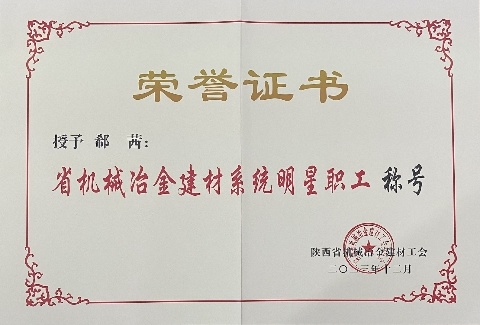 荣誉证书
授予 郗 茜：
省机械冶金建材系统明星职工 称号
陕西省机械冶金建材工会
二〇二三年十二月